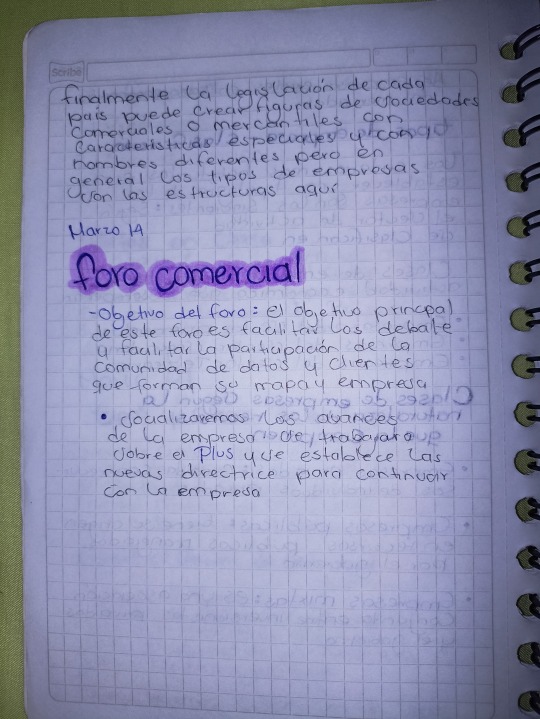 Scribe
finalmente la legislación de cada
país puede crear figuras de sociedades
comerciales o mercantiles con
características especiales y con
nombres diferentes pero en
general los tipos de empresas
son las estructuras aquí
Marzo 14
foro comercial
-Objetivo del foro: el objetivo principal
de este foro es facilitar los debate
y facilitar la participación de la
comunidad de datos y clientes
que forman su mapa y empresa
• socializaremos los avances
de la empresa se trabajara
sobre el Plus y se establece las
nuevas directrice para continuar
con la empresa